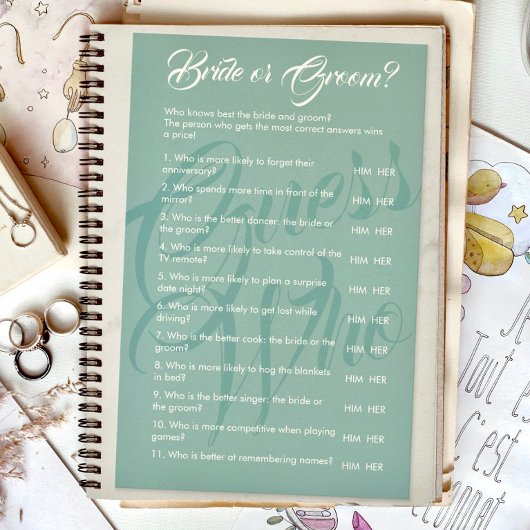 Bride or Groom?
Who knows best the bride and groom?
The person who gets the most correct answers wins
a price!
1. Who is more likely to forget their
anniversary? HIM HER
2. Who spends more time in front of the
mirror? HIM HER
3. Who is the better dancer: the bride or
the groom? HIM HER
4. Who is more likely to take control of the
TV remote? HIM HER
5. Who is more likely to plan a surprise
date night? HIM HER
6. Who is more likely to get lost while
driving? HIM HER
7. Who is the better cook: the bride or the
groom? HIM HER
8. Who is more likely to hog the blankets
in bed? HIM HER
9. Who is the better singer: the bride or
the groom? HIM HER
10. Who is more competitive when playing
games? HIM HER
11. Who is better at remembering names? HIM HER
Guess
Who
Je
Tout
C'est